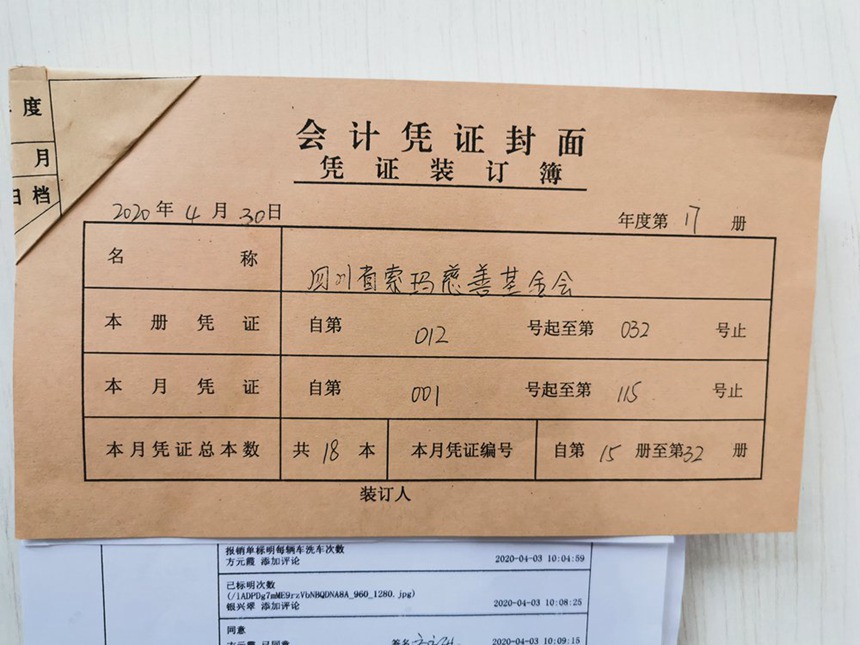 度
月
归档
会计凭证封面
凭证装订簿
2020年4月30日 年度第17册
名称 四川省索玛慈善基金会
本册凭证 自第012号起至第032号止
本月凭证 自第001号起至第115号止
本月凭证总本数 共18本 本月凭证编号 自第15册至第32册
装订人
报销单标明每辆车洗车次数
方元霞 添加评论 2020-04-03 10:04:59
已标明次数
(/lADPDg7mME9rzVbNBQDNA8A_960_1280.jpg)
银兴翠 添加评论 2020-04-03 10:08:25
同意
方元霞 已同意 签名 2020-04-03 10:09:15